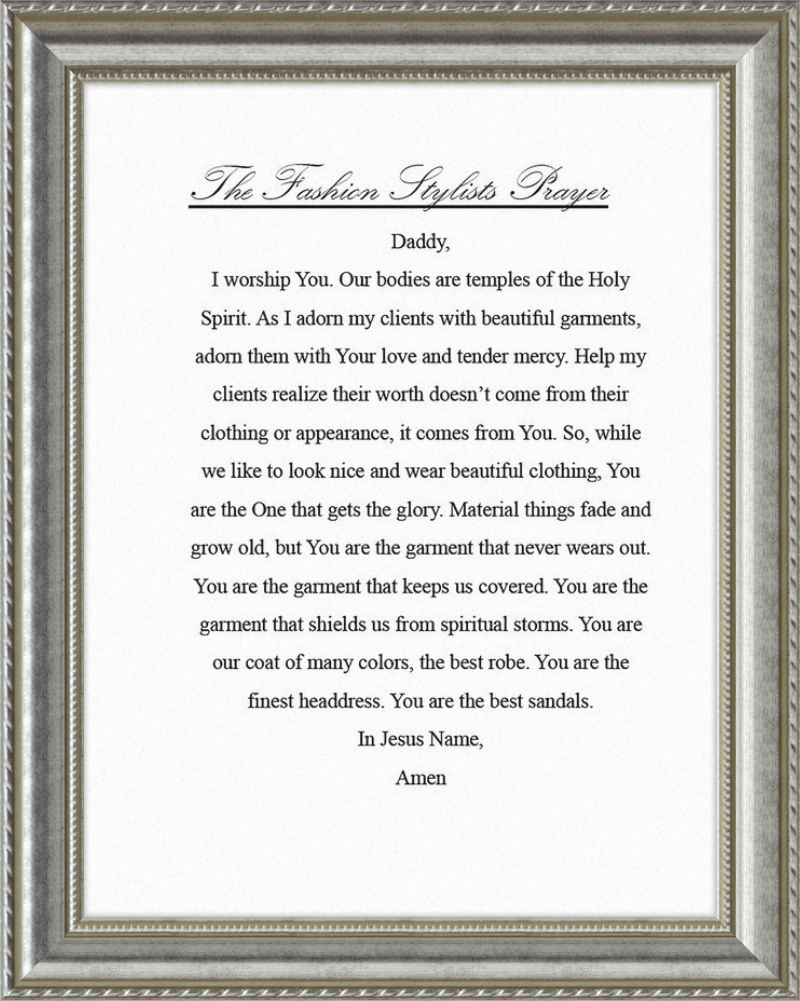 The Fashion Stylists Prayer
Daddy,
I worship You. Our bodies are temples of the Holy
Spirit. As I adorn my clients with beautiful garments,
adorn them with Your love and tender mercy. Help my
clients realize their worth doesn’t come from their
clothing or appearance, it comes from You. So, while
we like to look nice and wear beautiful clothing, You
are the One that gets the glory. Material things fade and
grow old, but You are the garment that never wears out.
You are the garment that keeps us covered. You are the
garment that shields us from spiritual storms. You are
our coat of many colors, the best robe. You are the
finest headdress. You are the best sandals.
In Jesus Name,
Amen